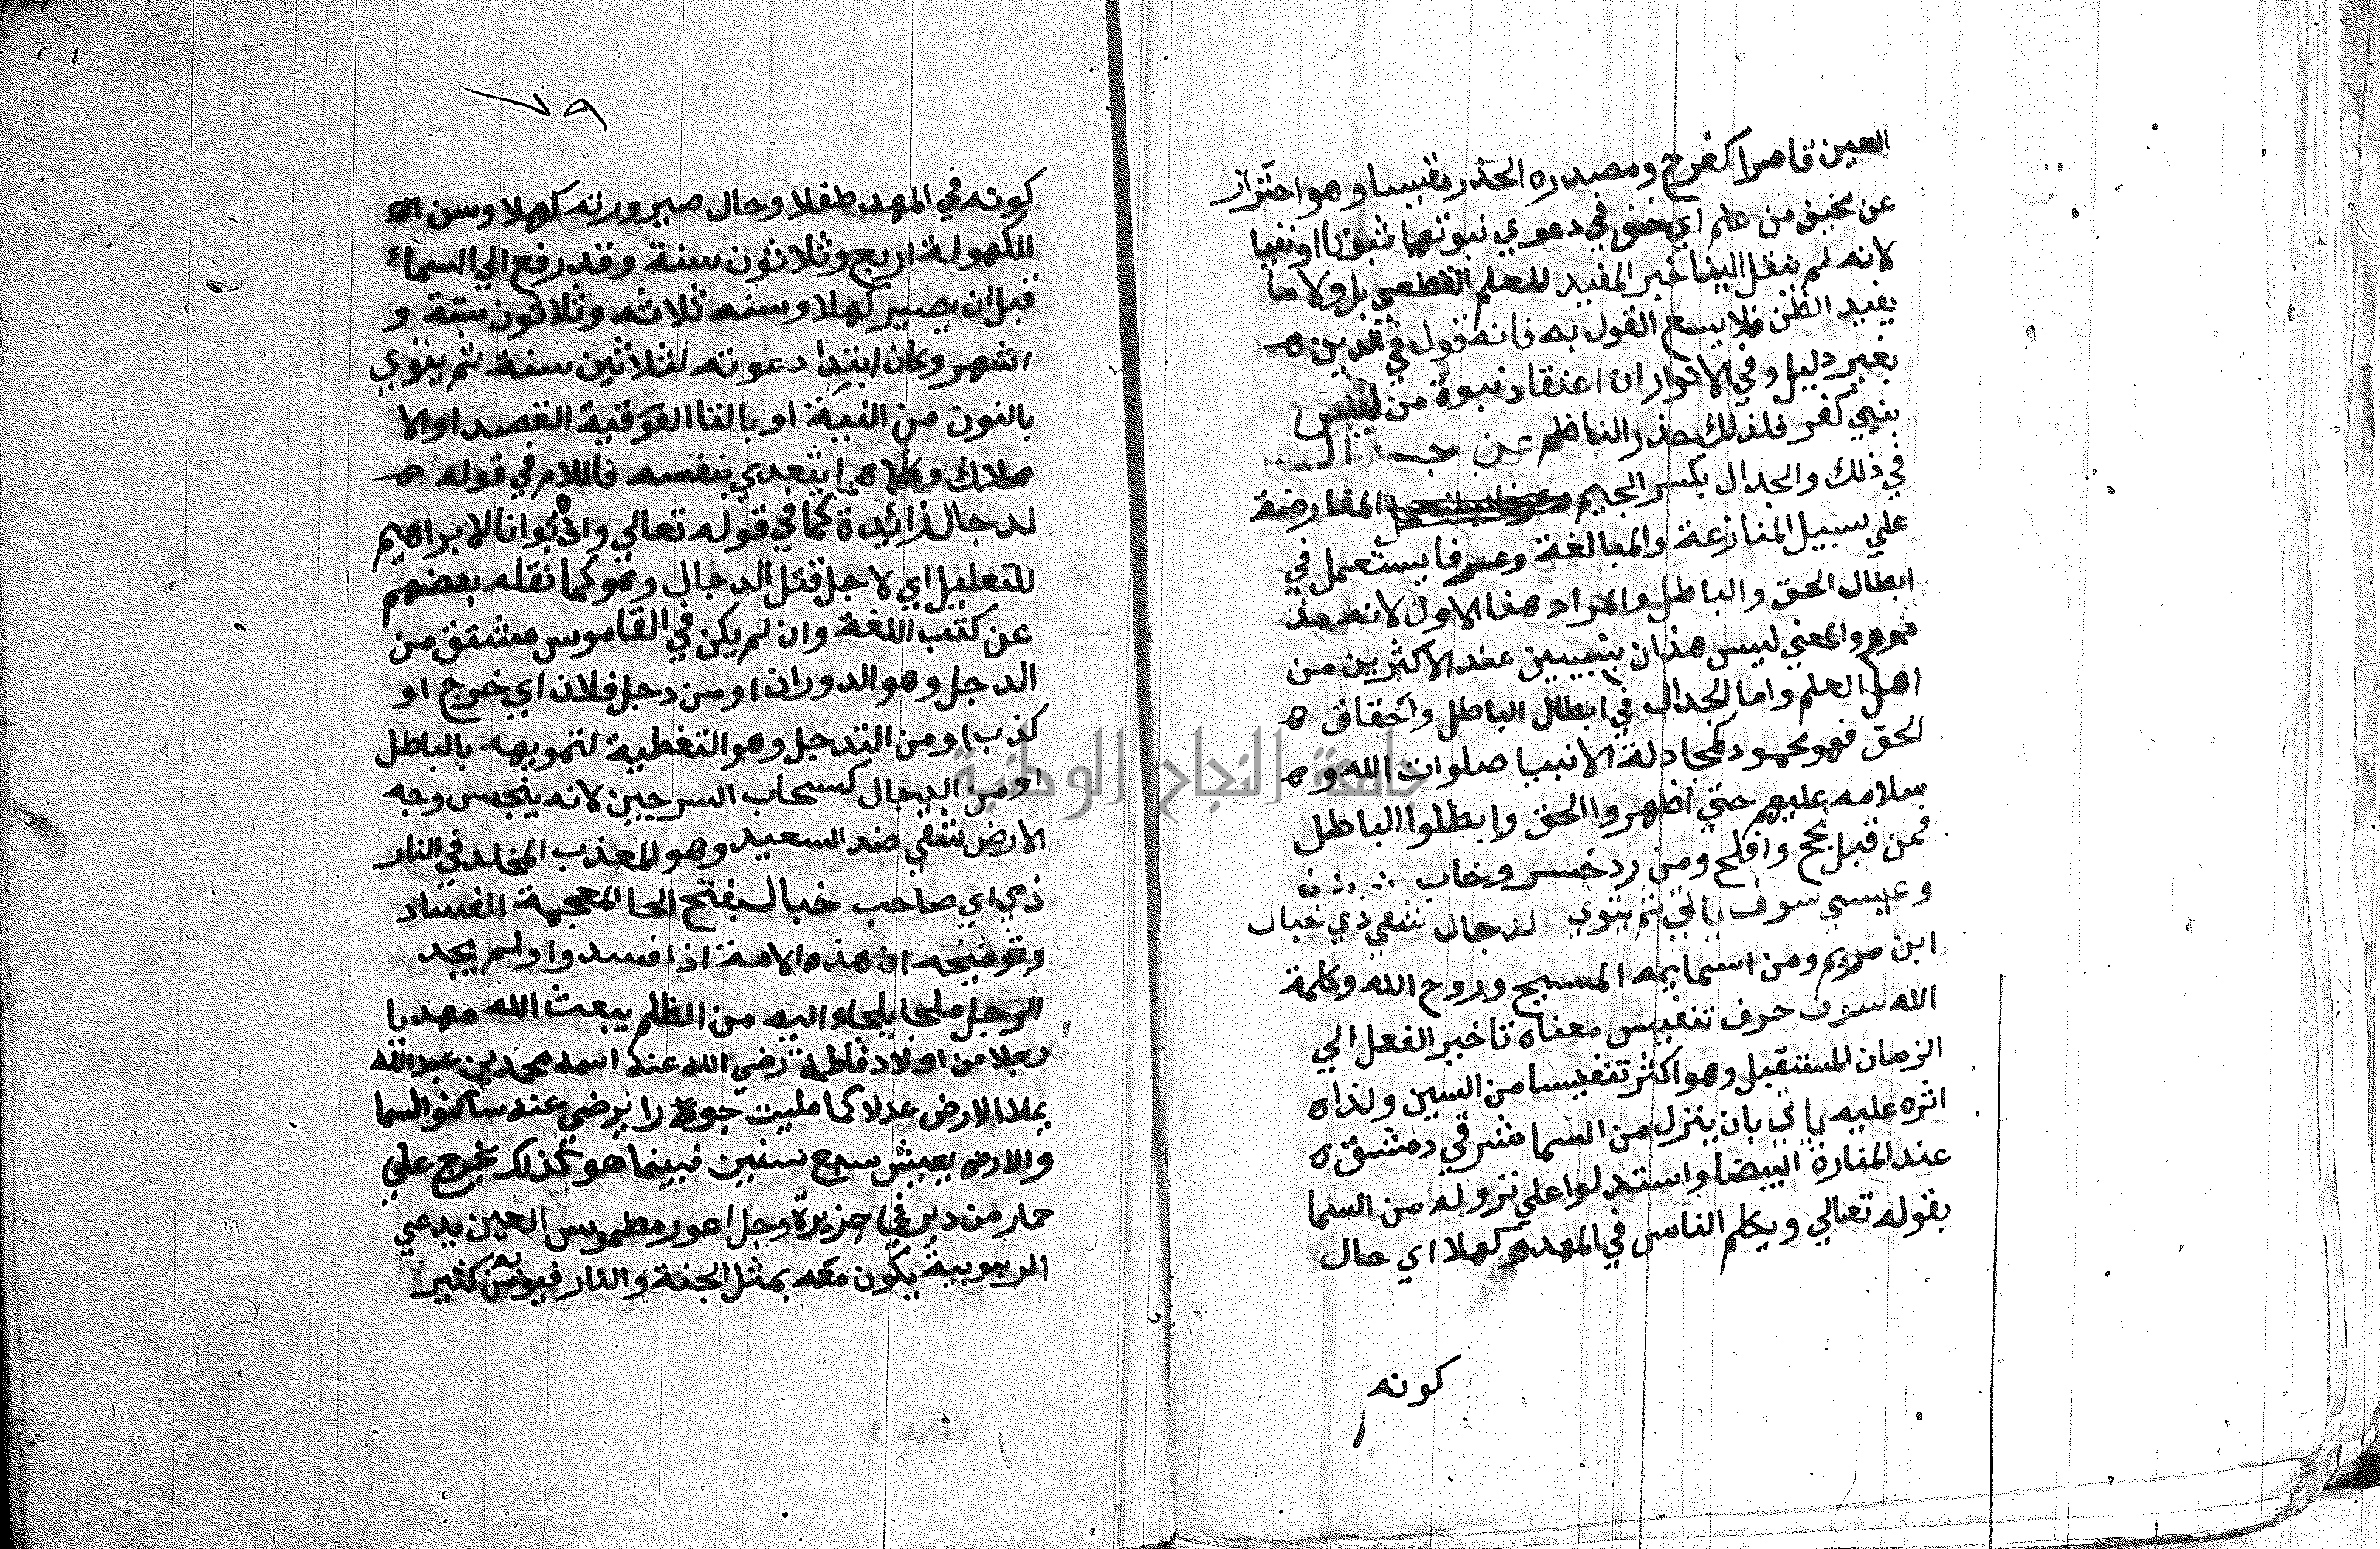 العين قاصرا كفرح ومصدره الحذر مقيسا وهو احتراز
عن مخيف من علم اي خض في دعوي نبوتهما ثبوتا او نفيا
لانه لم ينقل الينا خبر المفيد للعلم القطعي بل ولا ما
يفيد الظن فلا يسع القول به فانه قول في الدين ه
بغير دليل وفي الانوار ان اعتقاد نبوة من ليس
بنبي كفر فلذلك حذر الناظم عن
في ذلك والجدال بكسر الجيم المفارضة
علي سبيل المنازعة والمبالغة وعرفا يستعمل في
ابطال الحق والباطل والمراد هنا الاول لانه مذ
موم والمعني ليس هذان بنبيين عند الاكثرين من
اهل العلم واما الجدال في ابطال الباطل واحقاق ه
الحق فهو محمود كمجادلة الانبيا صلوات الله و ه
سلامه عليهم حتي اظهروا الحق وابطلوا الباطل
فمن قبل نجح وافلح ومن رد خسر وخاب
وعيسي سوف ياتي ثم ينوي لدجال شقي ذي خبال
ابن مريم ومن اسمايه المسيح وروح الله وكلمة
الله سوف حرف تنفيس معناه تاخير الفعل الي
الزمان المستقبل وهو اكثر تنفيسا من السين ولذا ه
اثره عليه ياتي بان ينزل من السما شرقي دمشق ه
عند المنارة البيضا واستدلوا علي نزوله من السما
بقوله تعالي ويكلم الناس في المهد وكهلا اي حال
كونه
٧٩
كونه في المهد طفلا وحال صيرورته كهلا وسن
الكهولة اربع وثلاثون سنة وقد رفع الي السماء
قبل ان يصير كهلا وسنه ثلاثه وثلاثون سنة و
اشهر وكان ابتدا دعوته لثلاثين سنة ثم ينوي
بالنون من النية او بالتا الفوقية القصد او الا
هلاك وكلاهما يتعدي بنفسه فاللام في قوله ه
لدجال زائدة كما في قوله تعالي واذ بوانا لابراهيم
للتعليل اي لاجل قتل الدجال وهو كما نقله بعضهم
عن كتب اللغة وان لم يكن في القاموس مشتق من
الدجل وهو الدوران او من دجل فلان اي خرج او
كذب او من التدجل وهو التغطية لتمويهه بالباطل
او من الدجال كسحاب السرجين لانه ينجس وجه
الارض شقي ضد السعيد وهو المعذب المخلد في النار
ذي اي صاحب خبال بفتح الخا المعجمة الفساد
وتوضيحه ان هذه الامة اذا فسدوا ولم يجد
الرجل ملجا يلجاء اليه من الظلم يبعث الله مهديا
رجلا من اولاد فاطمة رضي الله عنه اسمه محمد بن عبد الله
يملا الارض عدلا كما مليت جورا يرضي عنه ساكنو السما
والارض يعيش سبع سنين فبينما هو كذلك يخرج علي
حمار من دير في جزيرة رجل اعور مطموس العين يدعي
الربوبية يكون معه بمثل الجنة والنار فيومن كثير